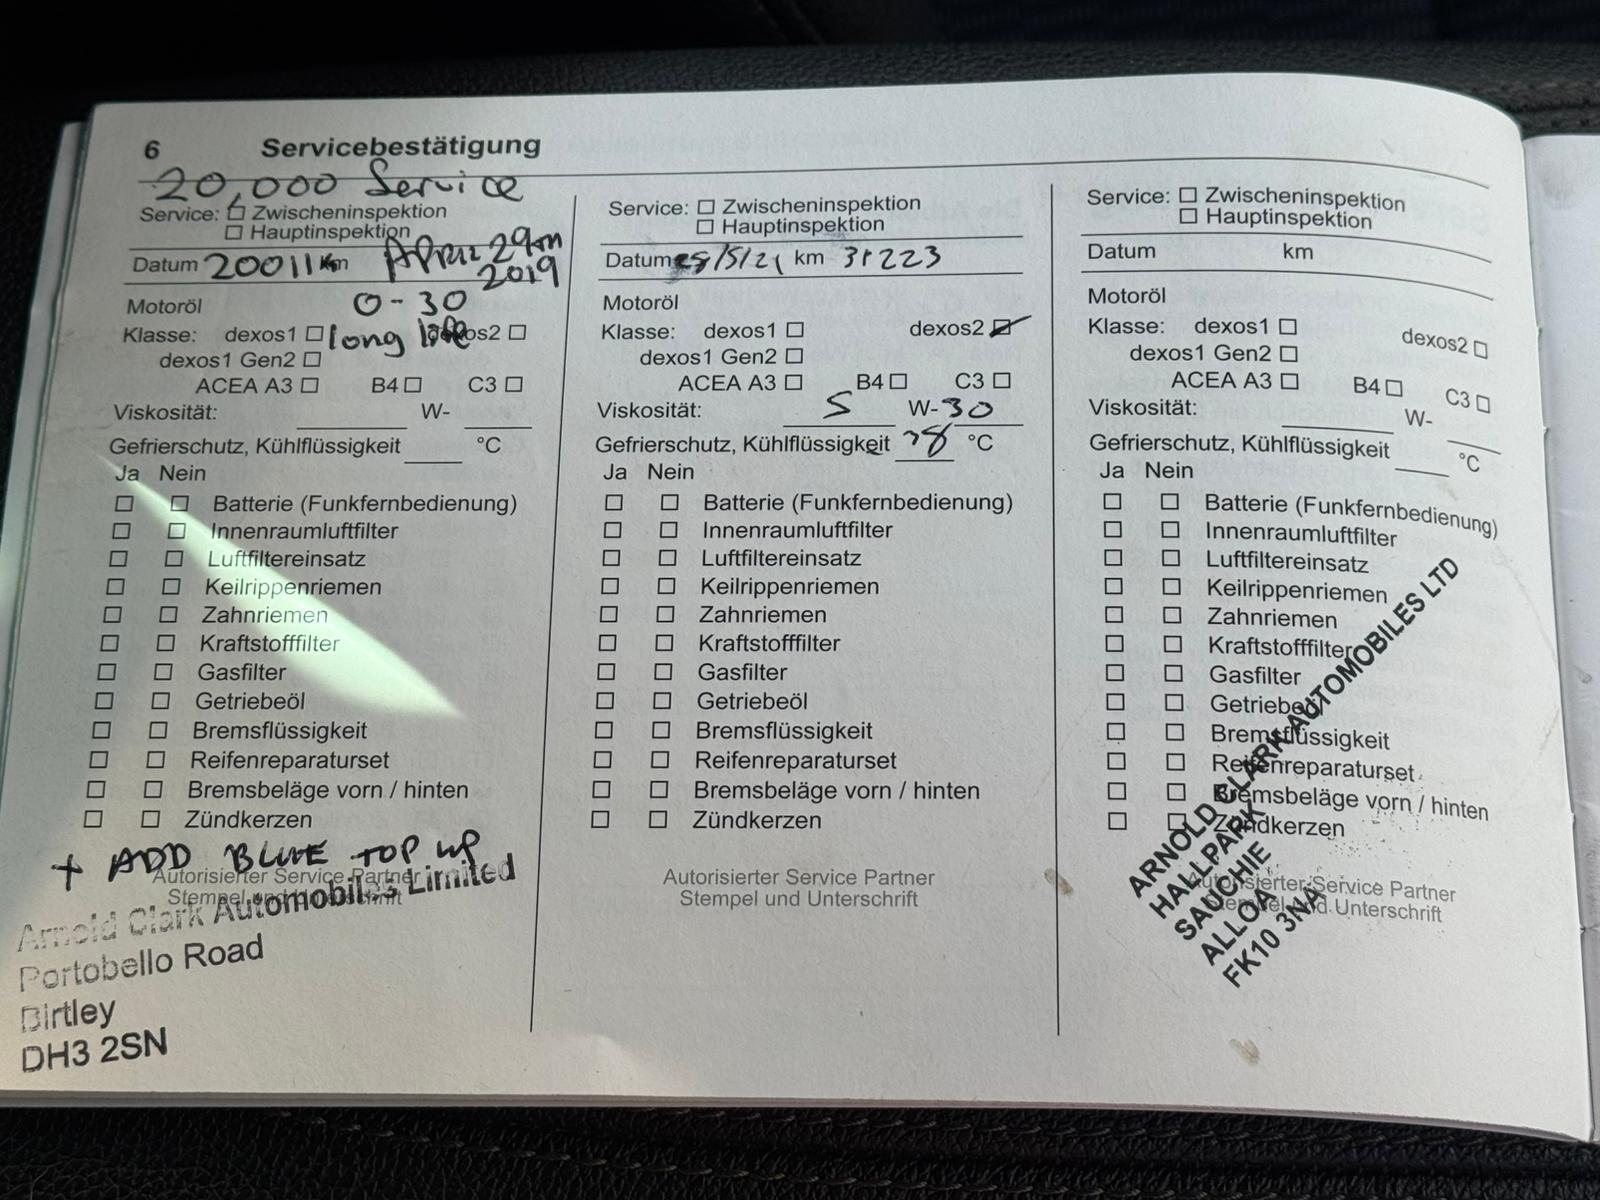 6 Servicebestätigung
20,000 Service
Service: Zwischeninspektion
Hauptinspektion
Datum 20011km April 29th 2019
Motoröl 0-30
Klasse: dexos1 long life dexos2
dexos1 Gen2
ACEA A3 B4 C3
Viskosität: W-
Gefrierschutz, Kühlflüssigkeit °C
Ja Nein
Batterie (Funkfernbedienung)
Innenraumluftfilter
Luftfiltereinsatz
Keilrippenriemen
Zahnriemen
Kraftstofffilter
Gasfilter
Getriebeöl
Bremsflüssigkeit
Reifenreparaturset
Bremsbeläge vorn / hinten
Zündkerzen
+ ADD BLUE TOP UP
Autorisierter Service Partner
Stempel und Unterschrift
Arnold Clark Automobiles Limited
Portobello Road
Birtley
DH3 2SN
Service: Zwischeninspektion
Hauptinspektion
Datum /5/21 km 31223
Motoröl
Klasse: dexos1 dexos2
dexos1 Gen2
ACEA A3 B4 C3
Viskosität: 5 W-30
Gefrierschutz, Kühlflüssigkeit °C
Ja Nein
Batterie (Funkfernbedienung)
Innenraumluftfilter
Luftfiltereinsatz
Keilrippenriemen
Zahnriemen
Kraftstofffilter
Gasfilter
Getriebeöl
Bremsflüssigkeit
Reifenreparaturset
Bremsbeläge vorn / hinten
Zündkerzen
Autorisierter Service Partner
Stempel und Unterschrift
Service: Zwischeninspektion
Hauptinspektion
Datum km
Motoröl
Klasse: dexos1 dexos2
dexos1 Gen2
ACEA A3 B4 C3
Viskosität: W-
Gefrierschutz, Kühlflüssigkeit °C
Ja Nein
Batterie (Funkfernbedienung)
Innenraumluftfilter
Luftfiltereinsatz
Keilrippenriemen
Zahnriemen
Kraftstofffilter
Gasfilter
Getriebeöl
Bremsflüssigkeit
Reifenreparaturset
Bremsbeläge vorn / hinten
Zündkerzen
Autorisierter Service Partner
Stempel und Unterschrift
ARNOLD CLARK AUTOMOBILES LTD
HALLPARK
SAUCHIE
ALLOA
FK10 3NA